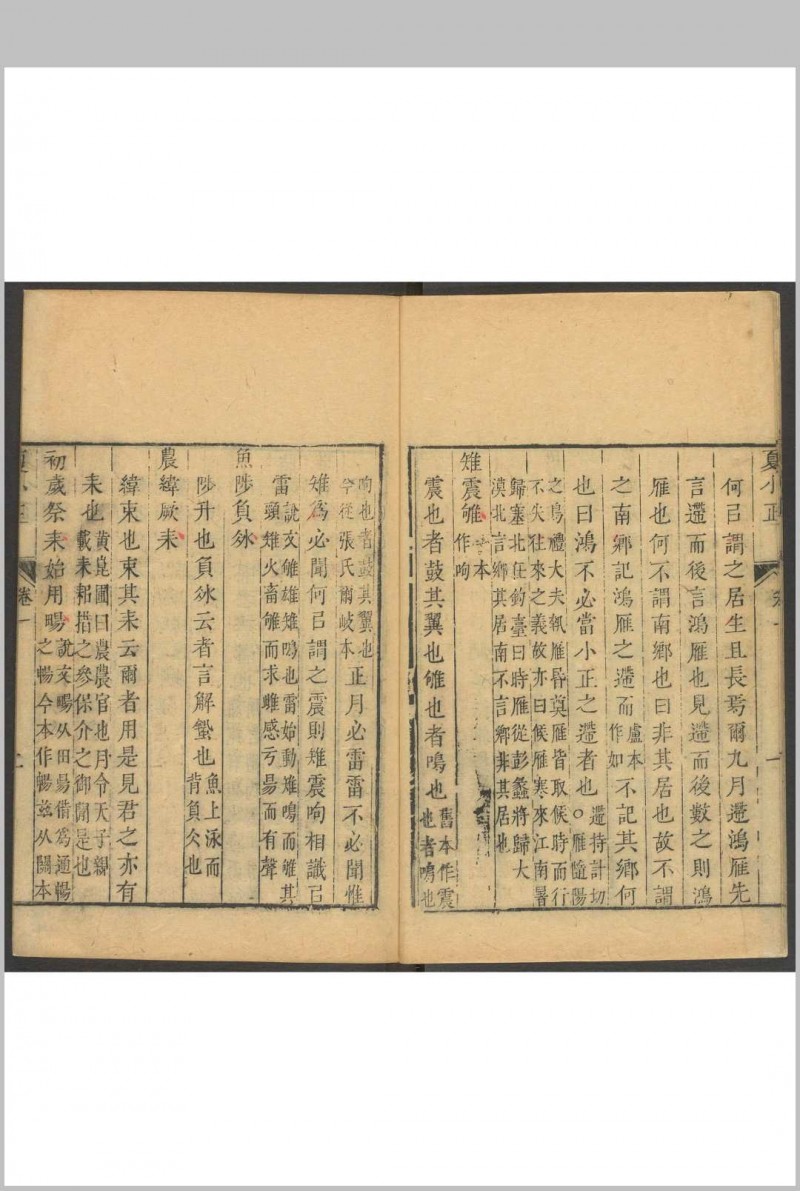 夏小正
何㠯謂之居生且長焉爾九月遰鴻雁先
言遰而後言鴻雁也見遰而後數之則鴻
雁也何不謂南鄉也曰非其居也故不謂
之南鄉記鴻雁之遰而盧本作如不記其鄉何
也曰鴻不必當小正之遰者也遰特計切○雁隨陽
之鳥禮大夫執雁昏奠雁皆取候時而行
不失往來之義故亦曰候雁寒來江南暑
歸塞北任鈞臺曰時雁從彭蠡將歸大
漠北言鄉其居南不言鄉非其居也
雉震雊本作呴
震也者鼓其翼也雊也者鳴也舊本作震也者鳴也
呴也者鼓其翼也今從張氏爾岐本正月必雷雷不必聞惟
雉爲必聞何㠯謂之震則雉震呴相識㠯
雷說文雊雄雉鳴也雷始動雉鳴而雊其頸雉火畜雊而求雌感亏昜而有聲
魚陟負冰
陟升也負冰云者言解蟄也魚上泳而背負仌也
農緯厥耒
緯束也束其耒云爾者用是見君之亦有
耒也黃崑圃曰農農官也月令天子親載耒耜措之參保介之御閒是也
初歲祭耒始用暘說文暘从田昜借爲通暢之暢今本作暢茲从關本
夏小正 卷一